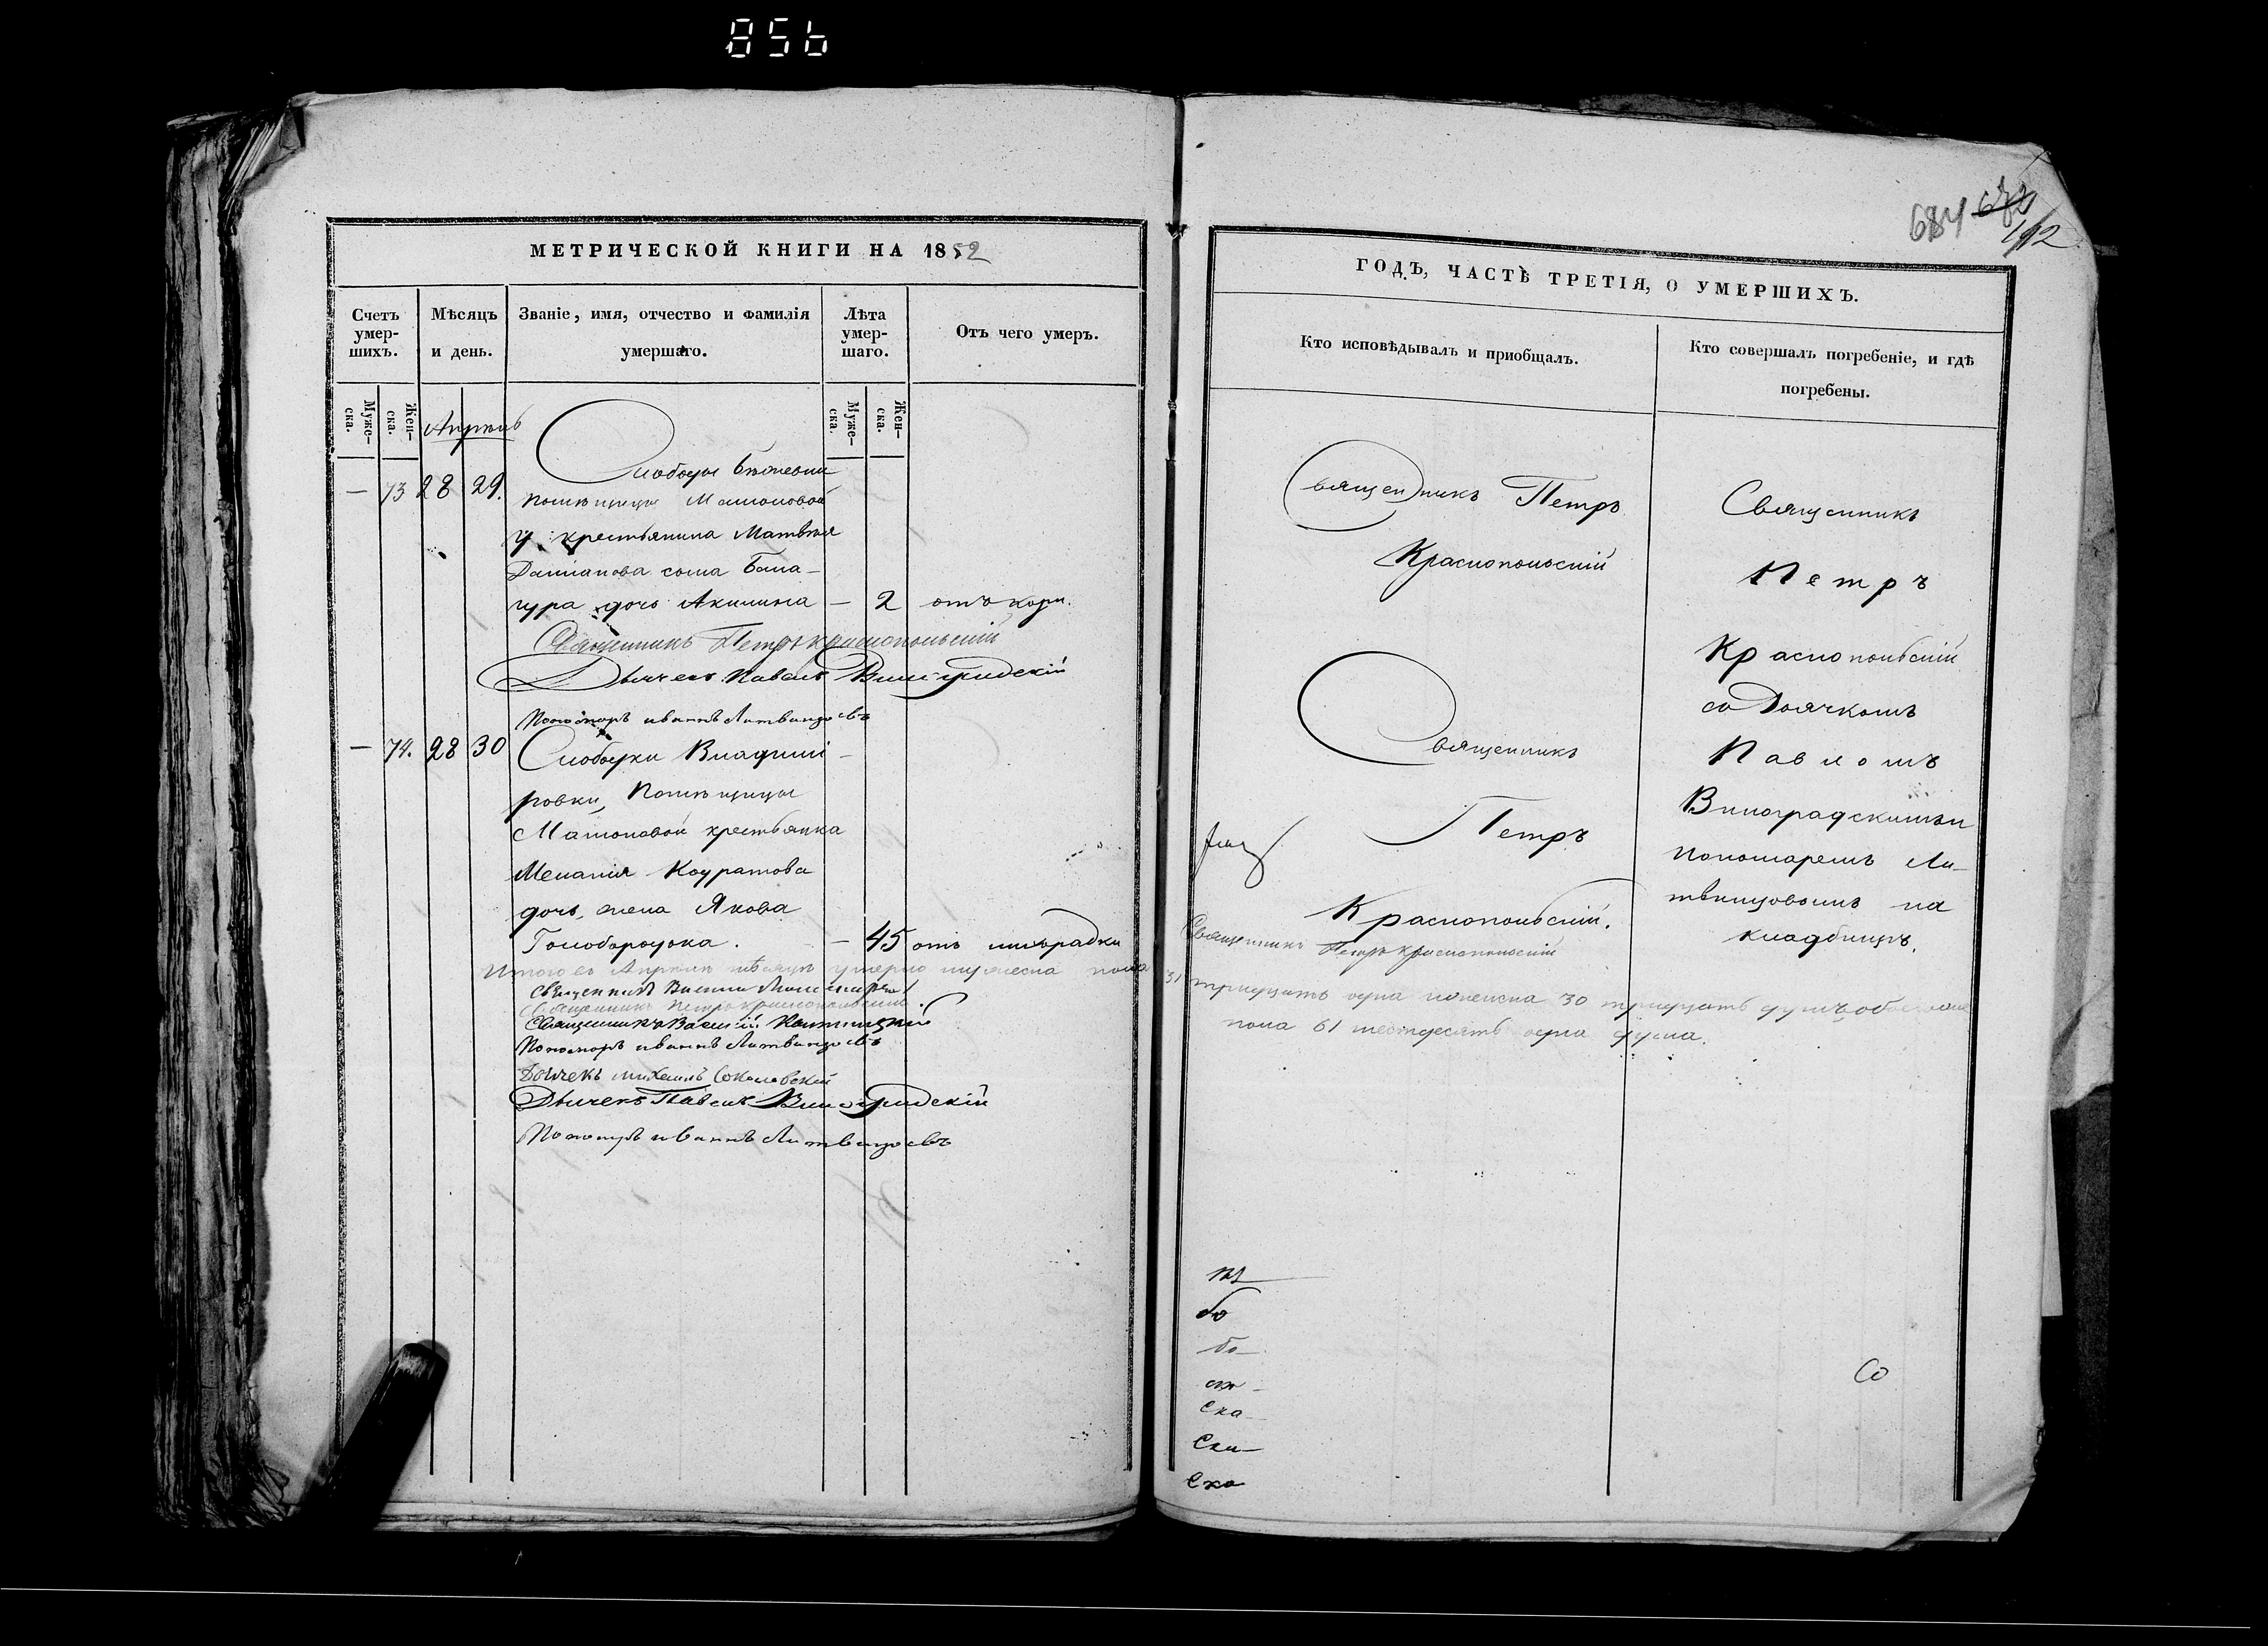 856
684 682
112
МЕТРИЧЕСКОЙ КНИГИ НА 1852
Счетъ умер-шихъ.
Мѣсяцъ и день.
Званіе, имя, отчество и фамилія умершаго.
Лѣта умер-шаго.
Отъ чего умеръ.
Муже-ска.
Жен-ска.
Апрель
Муже-ска.
Жен-ска.
— 73 28 29. Слободы
помѣщицы
у крестьянина Матвѣя
Даміанова сына Бала-
гура дочь Акилина — 2 отъ кори.
Священникъ Петръ Краснопольскій
Дьячекъ Павелъ Виноградскій
Пономарь Иваннъ Литвинцовъ
— 74. 28 30 Слободки Владимі-
ровки, Помѣщицы
крестьянка
Меланія Кодратова
дочь, жена Якова
Голобородька. — 45 отъ лихорадки
Итого въ Апрѣлѣ мѣсяцѣ умерло мужеска пола
Священникъ
Священникъ Петръ Краснопольскій.
Священникъ Василій
Пономарь Иваннъ Литвинцовъ
Дьячекъ Михаилъ Соколовскій
Дьячекъ Павелъ Виноградскій
Пономарь Иваннъ Литвинцовъ
ГОДЪ, ЧАСТЬ ТРЕТІЯ, О УМЕРШИХЪ.
Кто исповѣдывалъ и приобщалъ.
Кто совершалъ погребеніе, и гдѣ
погребены.
Священникъ Петръ
Краснопольскій
Священникъ
Петръ
Краснопольскій.
Священникъ Петръ Краснопольскій
Священникъ
Петръ
Краснопольскій
со Дьячкомъ
Павломъ
Виноградскимъ и
пономаремъ Ли-
твинцовымъ на
кладбищѣ.
31 тридцать одна женска 30 тридцать душъ, обоего
пола 61 шестдесятъ одна душа.
бо
бо
Ска
Ски
Ско
Со